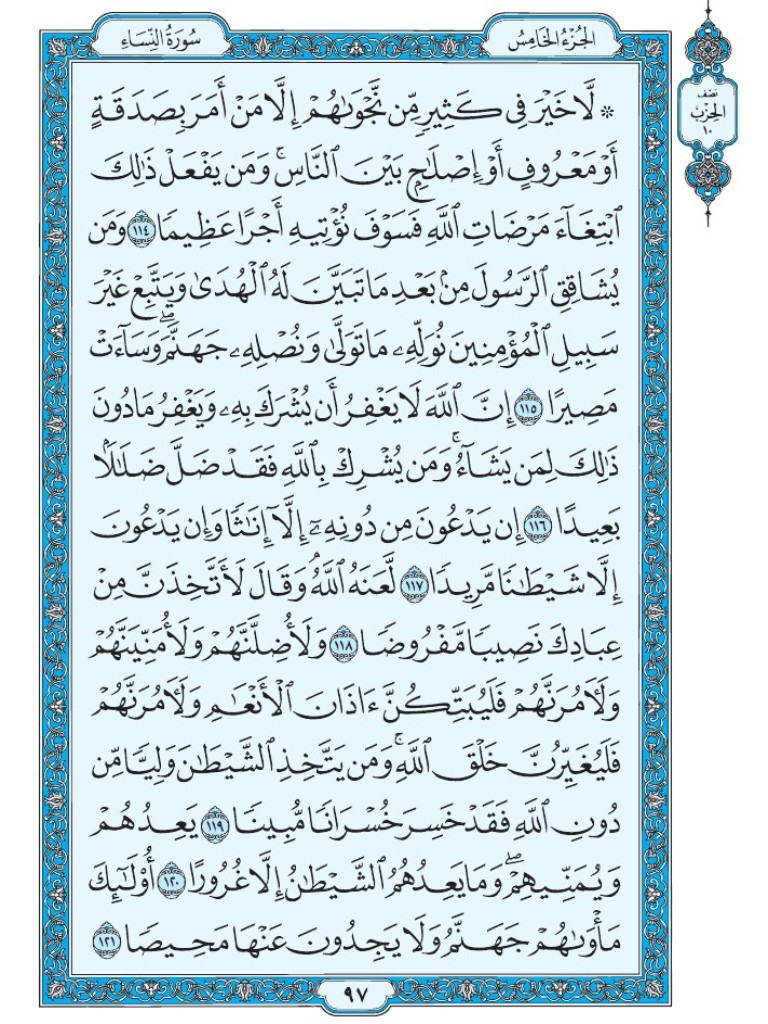 الجُزْءُ الخَامِسُ
سُورَةُ النِّسَاءِ
نصف
الحِزْبُ
١٠
۞ لَّا خَيْرَ فِى كَثِيرٍ مِّن نَّجْوَىٰهُمْ إِلَّا مَنْ أَمَرَ بِصَدَقَةٍ
أَوْ مَعْرُوفٍ أَوْ إِصْلَٰحٍۭ بَيْنَ ٱلنَّاسِۚ وَمَن يَفْعَلْ ذَٰلِكَ
ٱبْتِغَآءَ مَرْضَاتِ ٱللَّهِ فَسَوْفَ نُؤْتِيهِ أَجْرًا عَظِيمًا ١١٤ وَمَن
يُشَاقِقِ ٱلرَّسُولَ مِنۢ بَعْدِ مَا تَبَيَّنَ لَهُ ٱلْهُدَىٰ وَيَتَّبِعْ غَيْرَ
سَبِيلِ ٱلْمُؤْمِنِينَ نُوَلِّهِۦ مَا تَوَلَّىٰ وَنُصْلِهِۦ جَهَنَّمَۖ وَسَآءَتْ
مَصِيرًا ١١٥ إِنَّ ٱللَّهَ لَا يَغْفِرُ أَن يُشْرَكَ بِهِۦ وَيَغْفِرُ مَا دُونَ
ذَٰلِكَ لِمَن يَشَآءُۚ وَمَن يُشْرِكْ بِٱللَّهِ فَقَدْ ضَلَّ ضَلَٰلًۢا
بَعِيدًا ١١٦ إِن يَدْعُونَ مِن دُونِهِۦٓ إِلَّآ إِنَٰثًا وَإِن يَدْعُونَ
إِلَّا شَيْطَٰنًا مَّرِيدًا ١١٧ لَّعَنَهُ ٱللَّهُۘ وَقَالَ لَأَتَّخِذَنَّ مِنْ
عِبَادِكَ نَصِيبًا مَّفْرُوضًا ١١٨ وَلَأُضِلَّنَّهُمْ وَلَأُمَنِّيَنَّهُمْ
وَلَءَامُرَنَّهُمْ فَلَيُبَتِّكُنَّ ءَاذَانَ ٱلْأَنْعَٰمِ وَلَءَامُرَنَّهُمْ
فَلَيُغَيِّرُنَّ خَلْقَ ٱللَّهِۚ وَمَن يَتَّخِذِ ٱلشَّيْطَٰنَ وَلِيًّا مِّن
دُونِ ٱللَّهِ فَقَدْ خَسِرَ خُسْرَانًا مُّبِينًا ١١٩ يَعِدُهُمْ
وَيُمَنِّيهِمْۖ وَمَا يَعِدُهُمُ ٱلشَّيْطَٰنُ إِلَّا غُرُورًا ١٢٠ أُو۟لَٰٓئِكَ
مَأْوَىٰهُمْ جَهَنَّمُ وَلَا يَجِدُونَ عَنْهَا مَحِيصًا ١٢١
٩٧